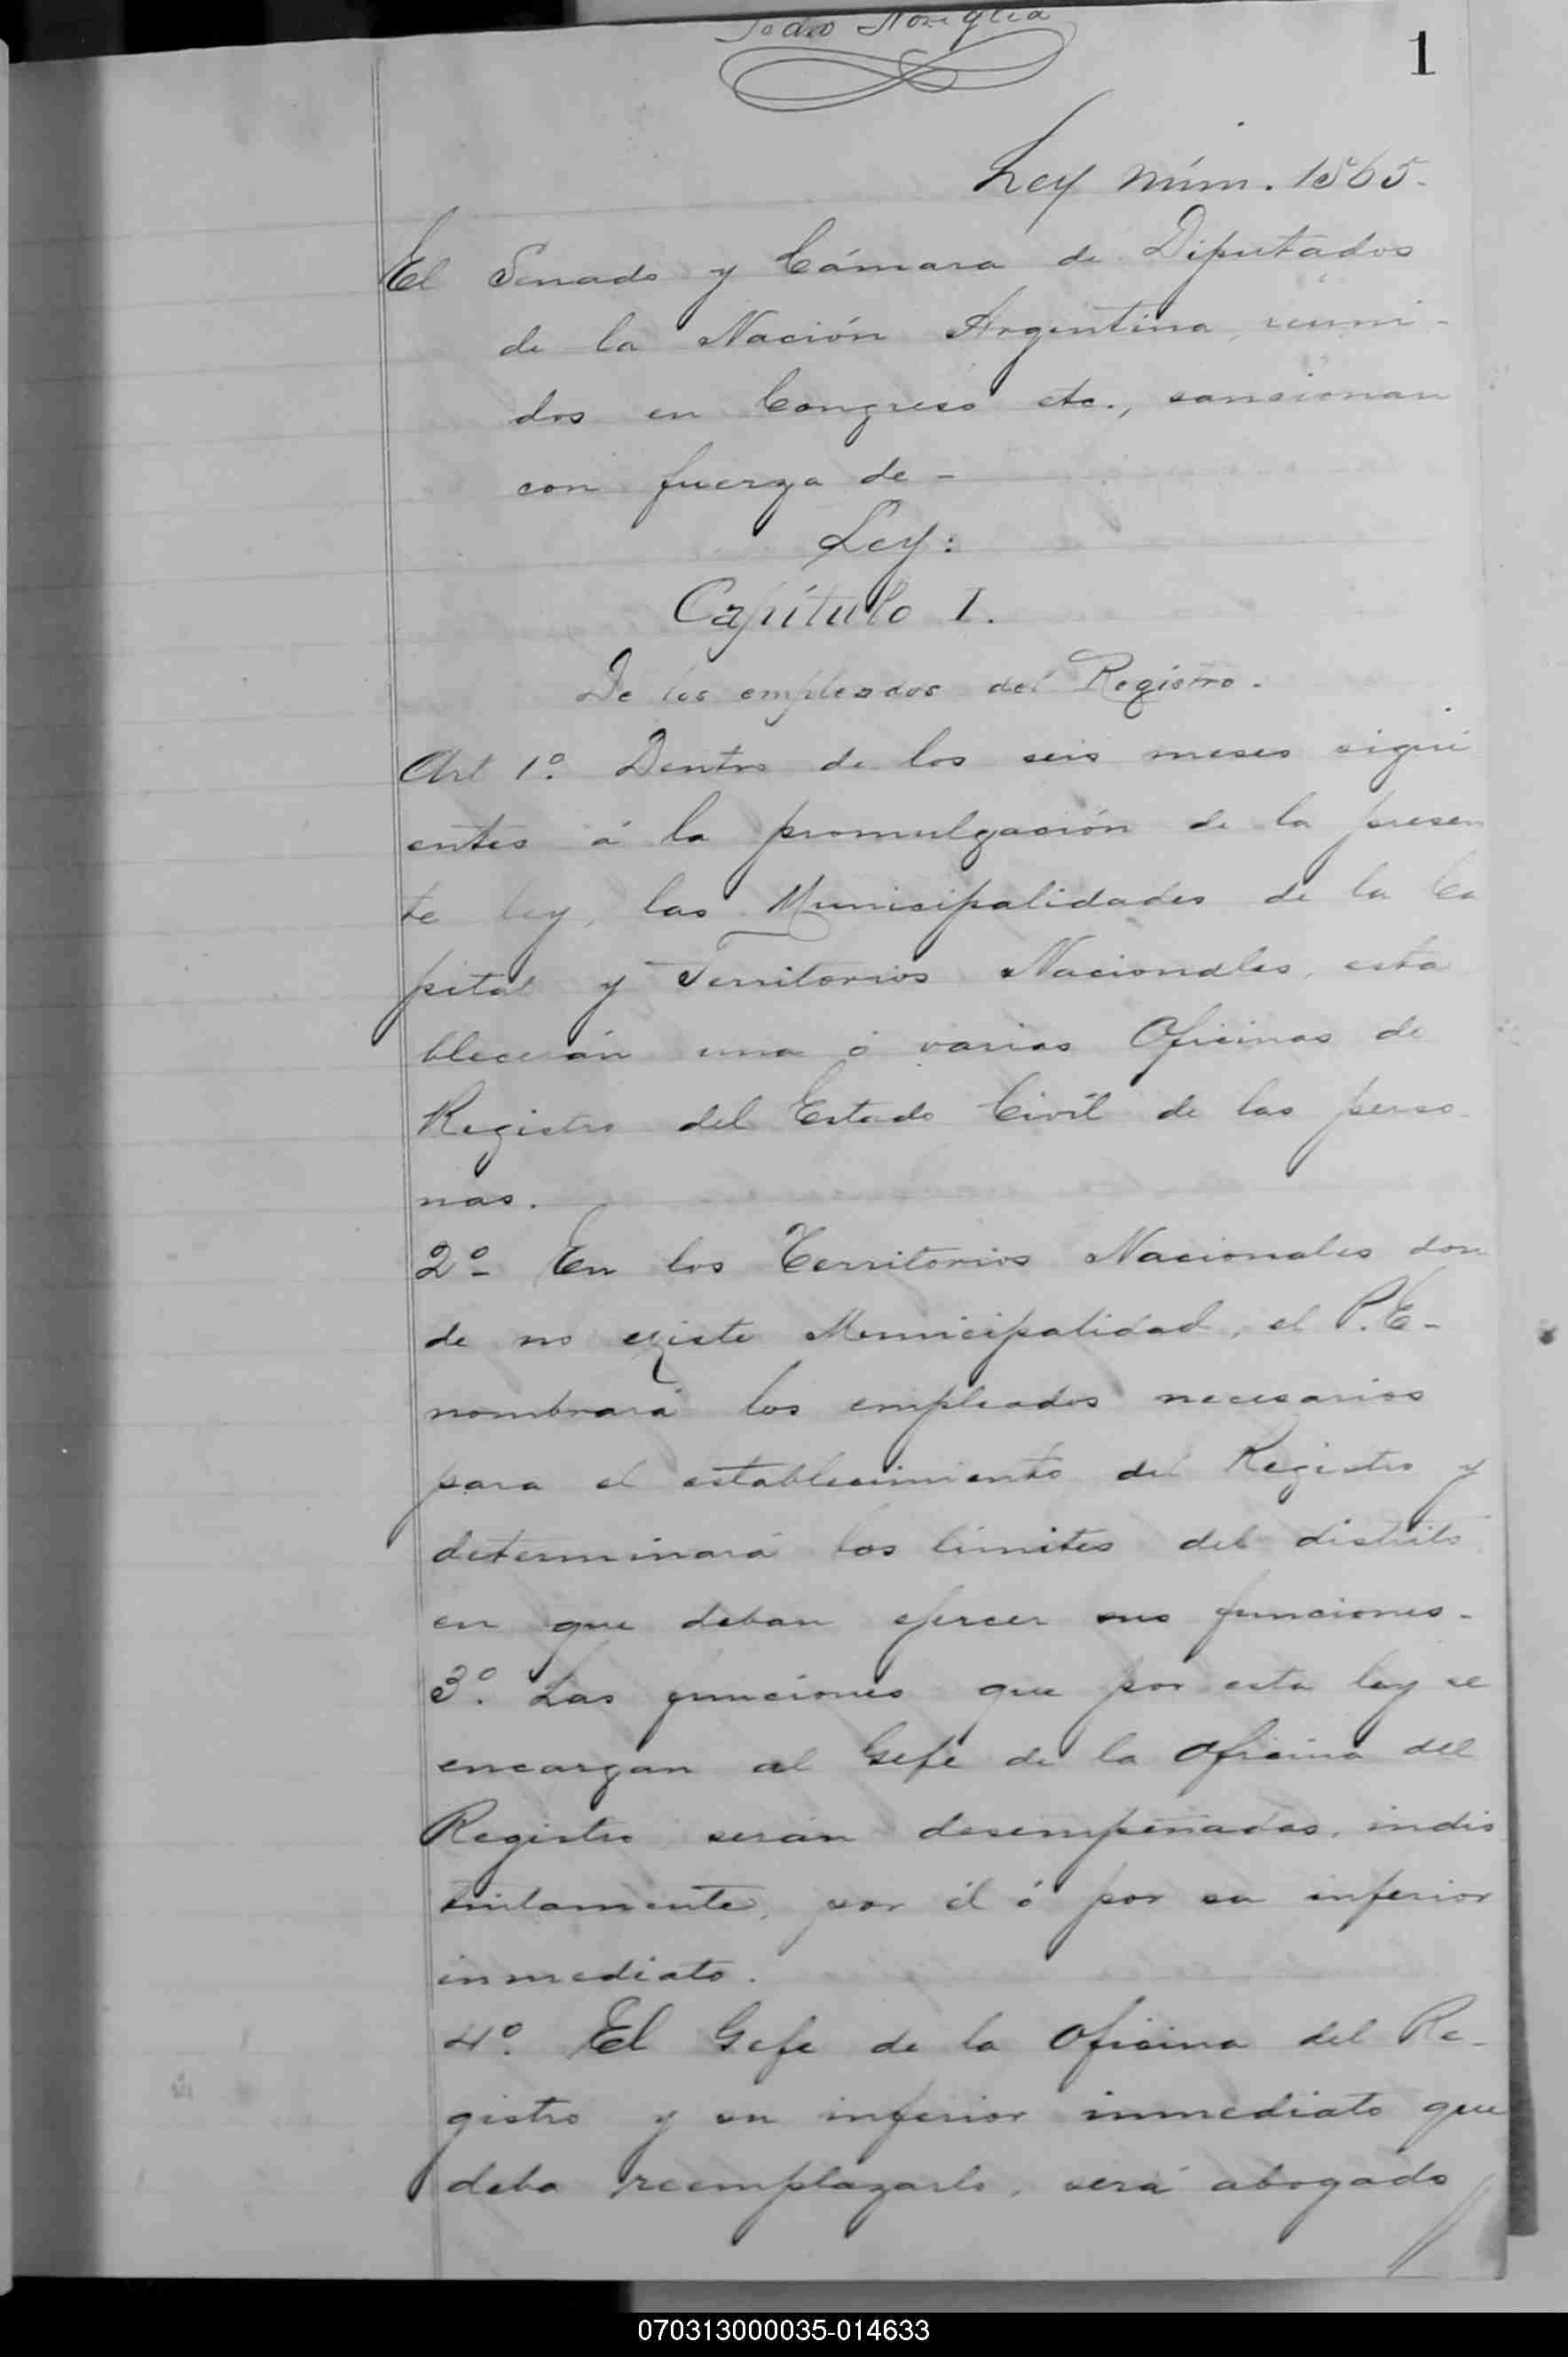 1
Ley núm. 1565.
El Senado y Cámara de Diputados
de la Nación Argentina, reuni-
dos en Congreso etc., sancionan
con fuerza de -
Ley:
Capítulo I.
De los empleados del Registro.
Art 1º. Dentro de los seis meses sigui
entes á la promulgación de la presen
te ley, las Municipalidades de la Ca
pital y Territorios Nacionales, esta
blecerán una ó varias Oficinas de
Registro del Estado Civil de las perso
nas.
2º- En los Territorios Nacionales don
de no existe Municipalidad, el P.E-
nombrará los empleados necesarios
para el establecimiento del Registro y
determinará los límites del distrito
en que deban ejercer sus funciones-
3º. Las funciones que por esta ley se
encargan al Gefe de la Oficina del
Registro serán desempeñadas, indis
tintamente, por él ó por su inferior
inmediato.
4º. El Gefe de la Oficina del Re-
gistro y su inferior inmediato que
deba reemplazarlo, será abogado
070313000035-014633